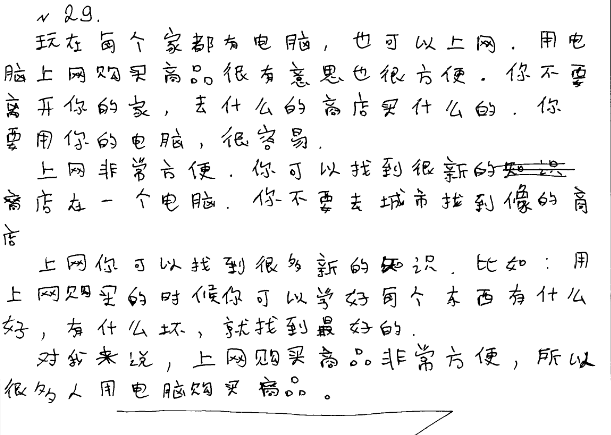 № 29.
玩在每个家都有电脑，也可以上网．用电
脑上网购买商品很有意思也很方便．你不要
离开你的家，去什么的商店买什么的．你
要用你的电脑，很容易．
上网非常方便．你可以找到很新的知识
商店在一个电脑．你不要去城市找到像的商
店
上网你可以找到很多新的知识．比如：用
上网购买的时候你可以学好每个东西有什么
好，有什么坏，就找到最好的．
对我来说，上网购买商品非常方便，所以
很多人用电脑购买商品。